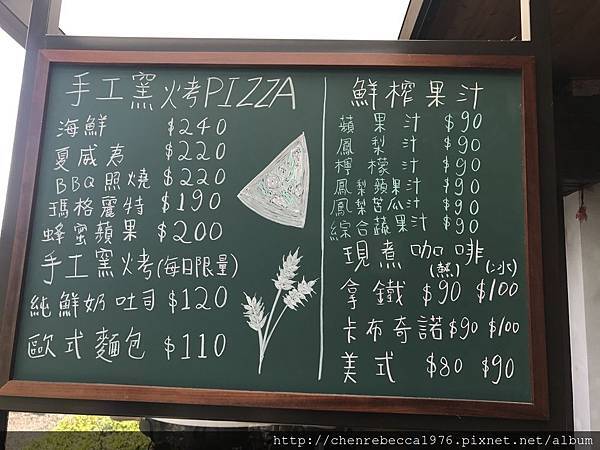 手工窯烤PIZZA
海鮮 $240
夏威夷 $220
BBQ照燒 $220
瑪格麗特 $190
蜂蜜蘋果 $200
手工窯烤(每日限量)
純鮮奶吐司 $120
歐式麵包 $110
鮮榨果汁
蘋果汁 $90
鳳梨汁 $90
檸檬汁 $90
鳳梨蘋果汁 $90
鳳梨苦瓜汁 $90
綜合蔬果汁 $90
現煮咖啡
(熱) (冰)
拿鐵 $90 $100
卡布奇諾 $90 $100
美式 $80 $90
http://chenrebecca1976.pixnet.net/album